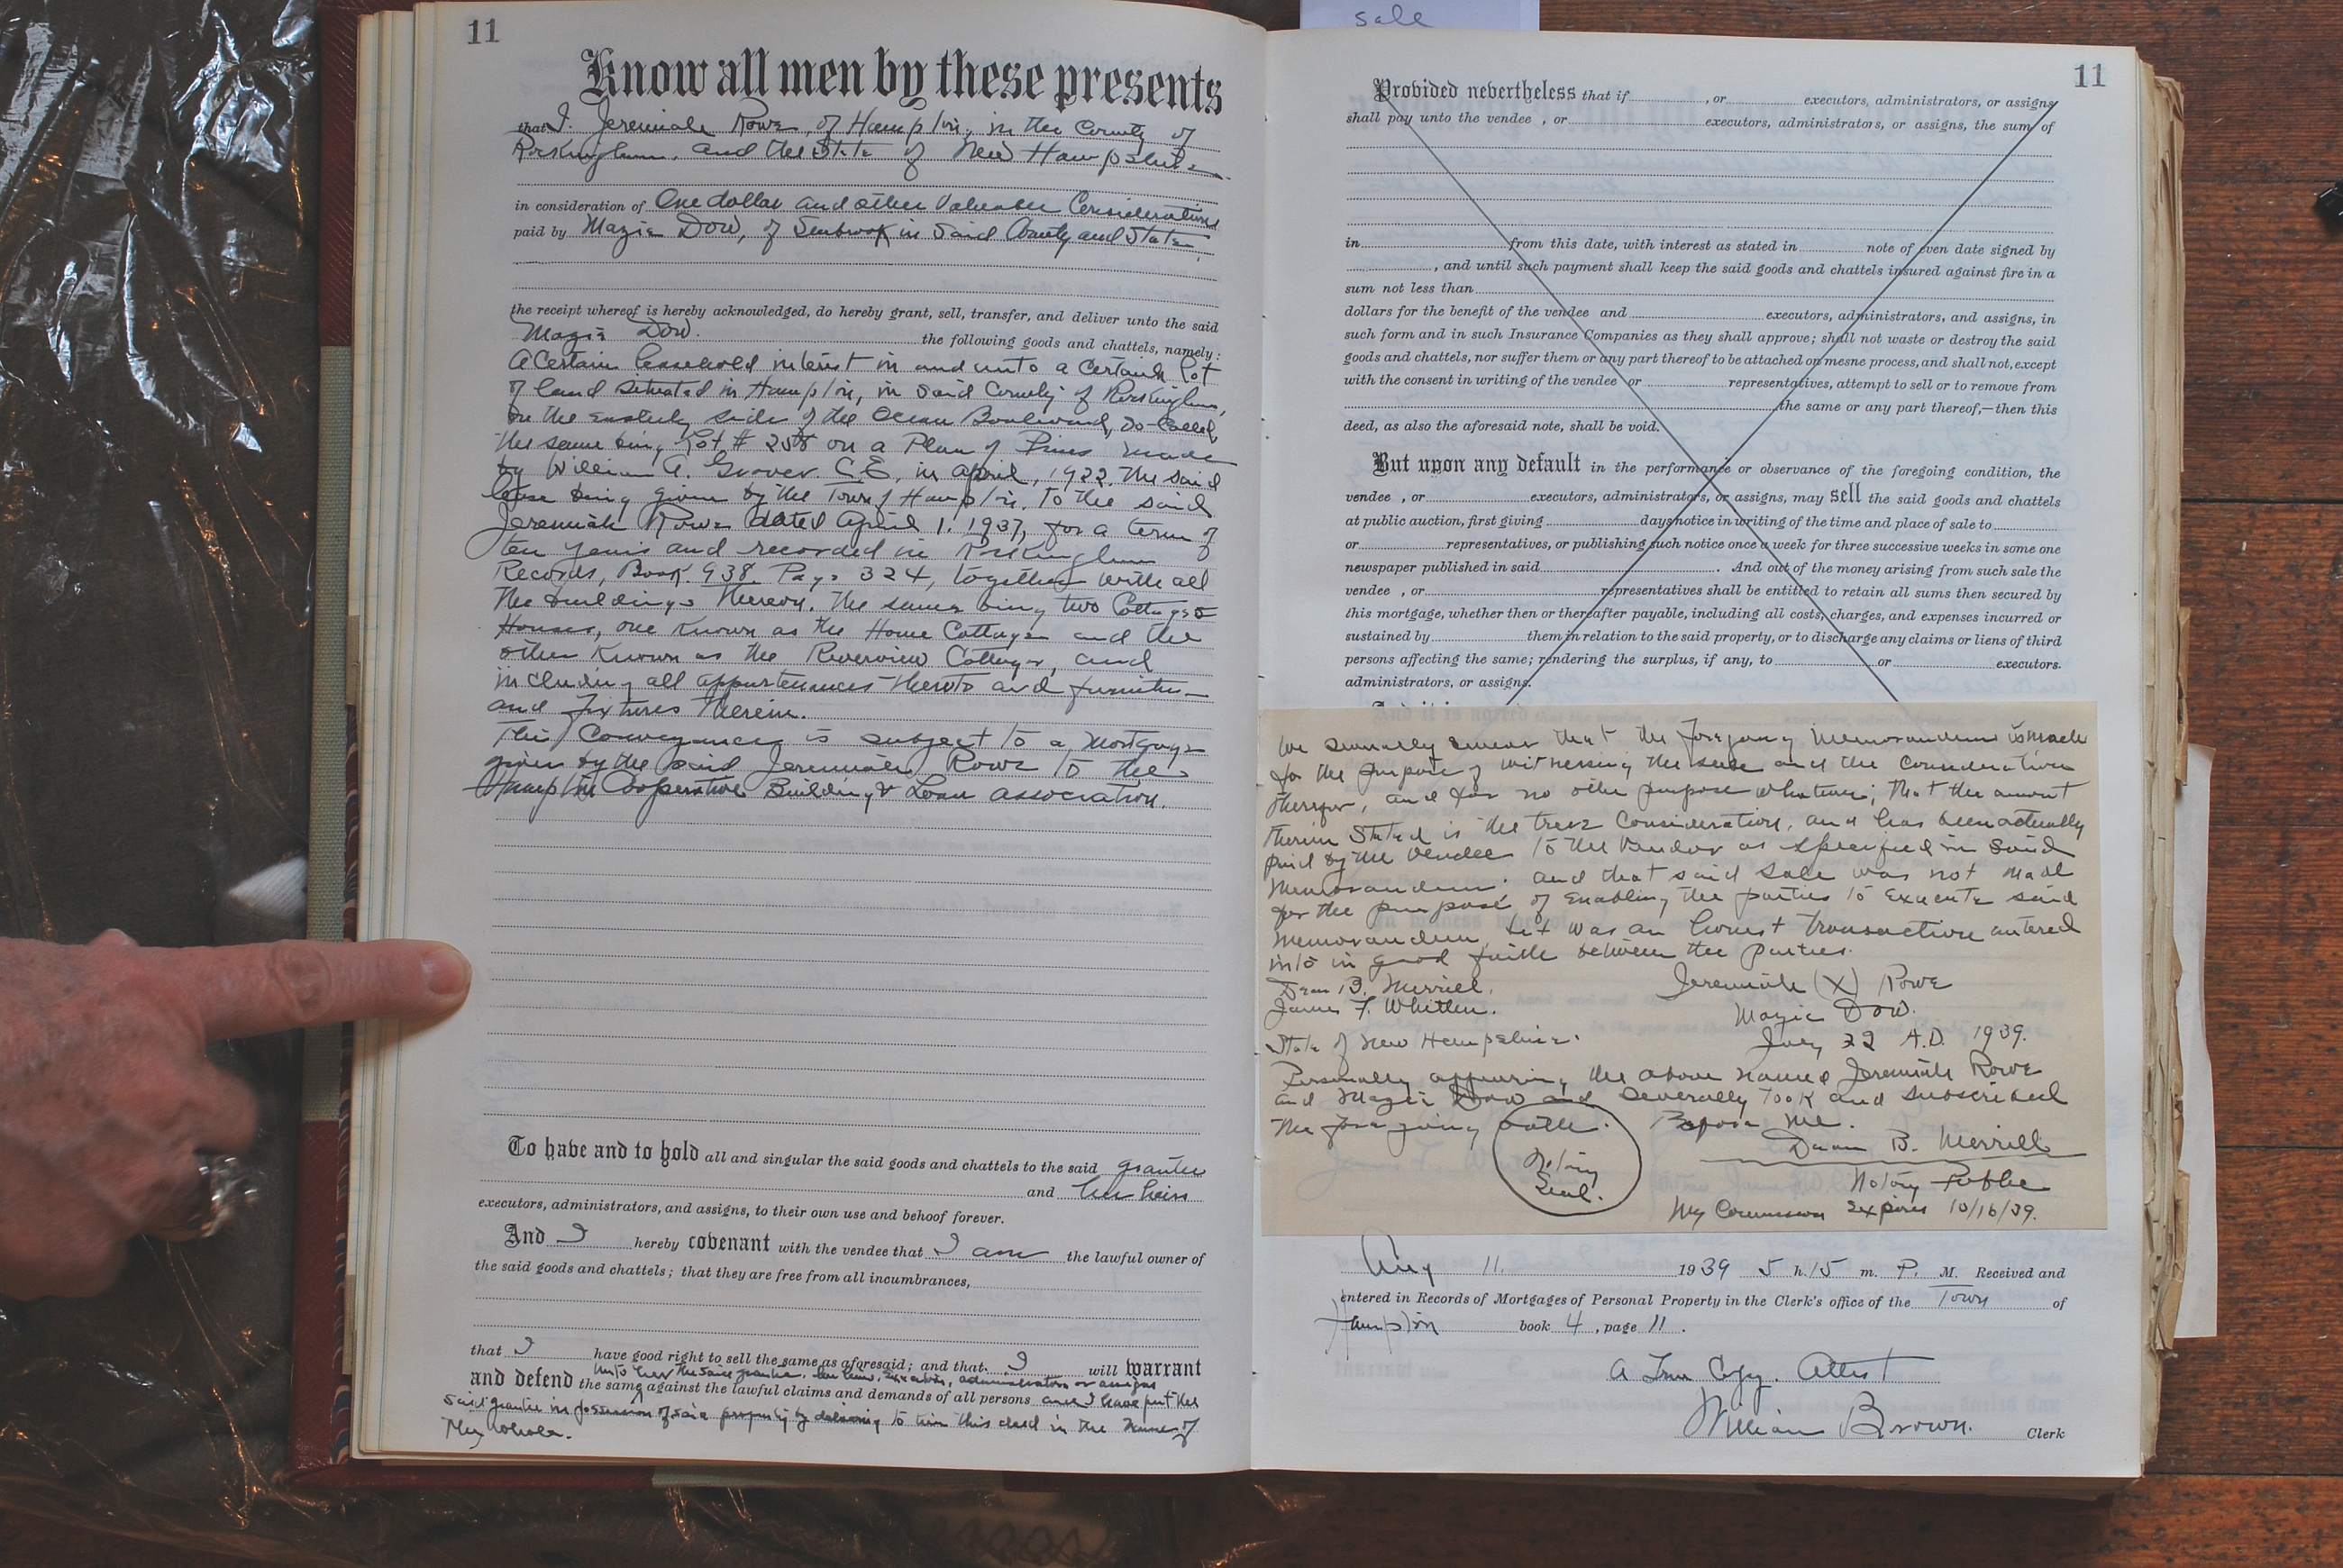 11
Know all men by these presents
that I, Jeremiah Rowe, of Hampton, in the County of
Rockingham, and the State of New Hampshire
in consideration of One dollar and other Valuable Considerations
paid by Mazie Dow, of Seabrook in Said County and State,
the receipt whereof is hereby acknowledged, do hereby grant, sell, transfer, and deliver unto the said
Mazie Dow. the following goods and chattels, namely:
A Certain leasehold interest in and unto a Certain Lot
of land Situated in Hampton, in Said County of Rockingham,
on the Easterly side of the Ocean Boulevard, So-Called,
the same being Lot # on a Plan of made
by William A. Grover C.E, in April, 1922. The Said
lease being given by the Town of Hampton, to the said
Jeremiah Rowe dated April 1. 1937, for a term of
ten years and recorded in Rockingham
Records, Book. 938. Page 324, together with all
the buildings thereon. The same being two Cottage
Houses, one Known as the Home Cottage and the
other Known as the Riverview Cottage, and
including all appurtenances thereto and furniture
and fixtures therein.
This Conveyance is subject to a mortgage
given by the said Jeremiah Rowe to the
Hampton Cooperative Building & Loan association.
To have and to hold all and singular the said goods and chattels to the said grantee
and her heirs
executors, administrators, and assigns, to their own use and behoof forever.
And I hereby covenant with the vendee that I am the lawful owner of
the said goods and chattels; that they are free from all incumbrances,
that I have good right to sell the same as aforesaid; and that I will warrant
unto her the said grantee, her heirs, executors, administrators or assigns
and defend the same against the lawful claims and demands of all persons and I have put the
said grantee in possession of said property by delivering to him this deed in the name of
the whole.
sale
11
Provided nevertheless that if , or executors, administrators, or assigns
shall pay unto the vendee , or executors, administrators, or assigns, the sum of
in from this date, with interest as stated in note of even date signed by
, and until such payment shall keep the said goods and chattels insured against fire in a
sum not less than
dollars for the benefit of the vendee and executors, administrators, and assigns, in
such form and in such Insurance Companies as they shall approve; shall not waste or destroy the said
goods and chattels, nor suffer them or any part thereof to be attached on mesne process, and shall not, except
with the consent in writing of the vendee or representatives, attempt to sell or to remove from
the same or any part thereof,—then this
deed, as also the aforesaid note, shall be void.
But upon any default in the performance or observance of the foregoing condition, the
vendee , or executors, administrators, or assigns, may sell the said goods and chattels
at public auction, first giving days notice in writing of the time and place of sale to
or representatives, or publishing such notice once a week for three successive weeks in some one
newspaper published in said . And out of the money arising from such sale the
vendee , or representatives shall be entitled to retain all sums then secured by
this mortgage, whether then or thereafter payable, including all costs, charges, and expenses incurred or
sustained by them in relation to the said property, or to discharge any claims or liens of third
persons affecting the same; rendering the surplus, if any, to or executors.
administrators, or assigns.
We severally swear that the foregoing memorandum is made
for the purpose of witnessing the sale and the consideration
therefor, and for no other purpose whatever; that the amount
therein Stated is the true Consideration, and has been actually
paid by the Vendee to the Vendor as specified in said
Memorandum. and that said Sale was not made
for the purpose of enabling the parties to execute said
memorandum, but was an honest transaction entered
into in good faith between the parties.
Dean B. Merrill. Jeremiah (X) Rowe
James F. Whitten. Mazie Dow.
State of New Hampshire. July 22 A.D. 1939.
Personally appearing the above named Jeremiah Rowe
and Mazie Dow and Severally took and subscribed
the foregoing oath. Before Me.
Dean B. Merrill
Notary Seal.
Notary Public
My Commission expires 10/16/39.
Aug 11. 1939 5 h. 15 m. P. M. Received and
entered in Records of Mortgages of Personal Property in the Clerk's office of the Town of
Hampton book 4 , page 11 .
A True Copy. Attest
William Brown. Clerk